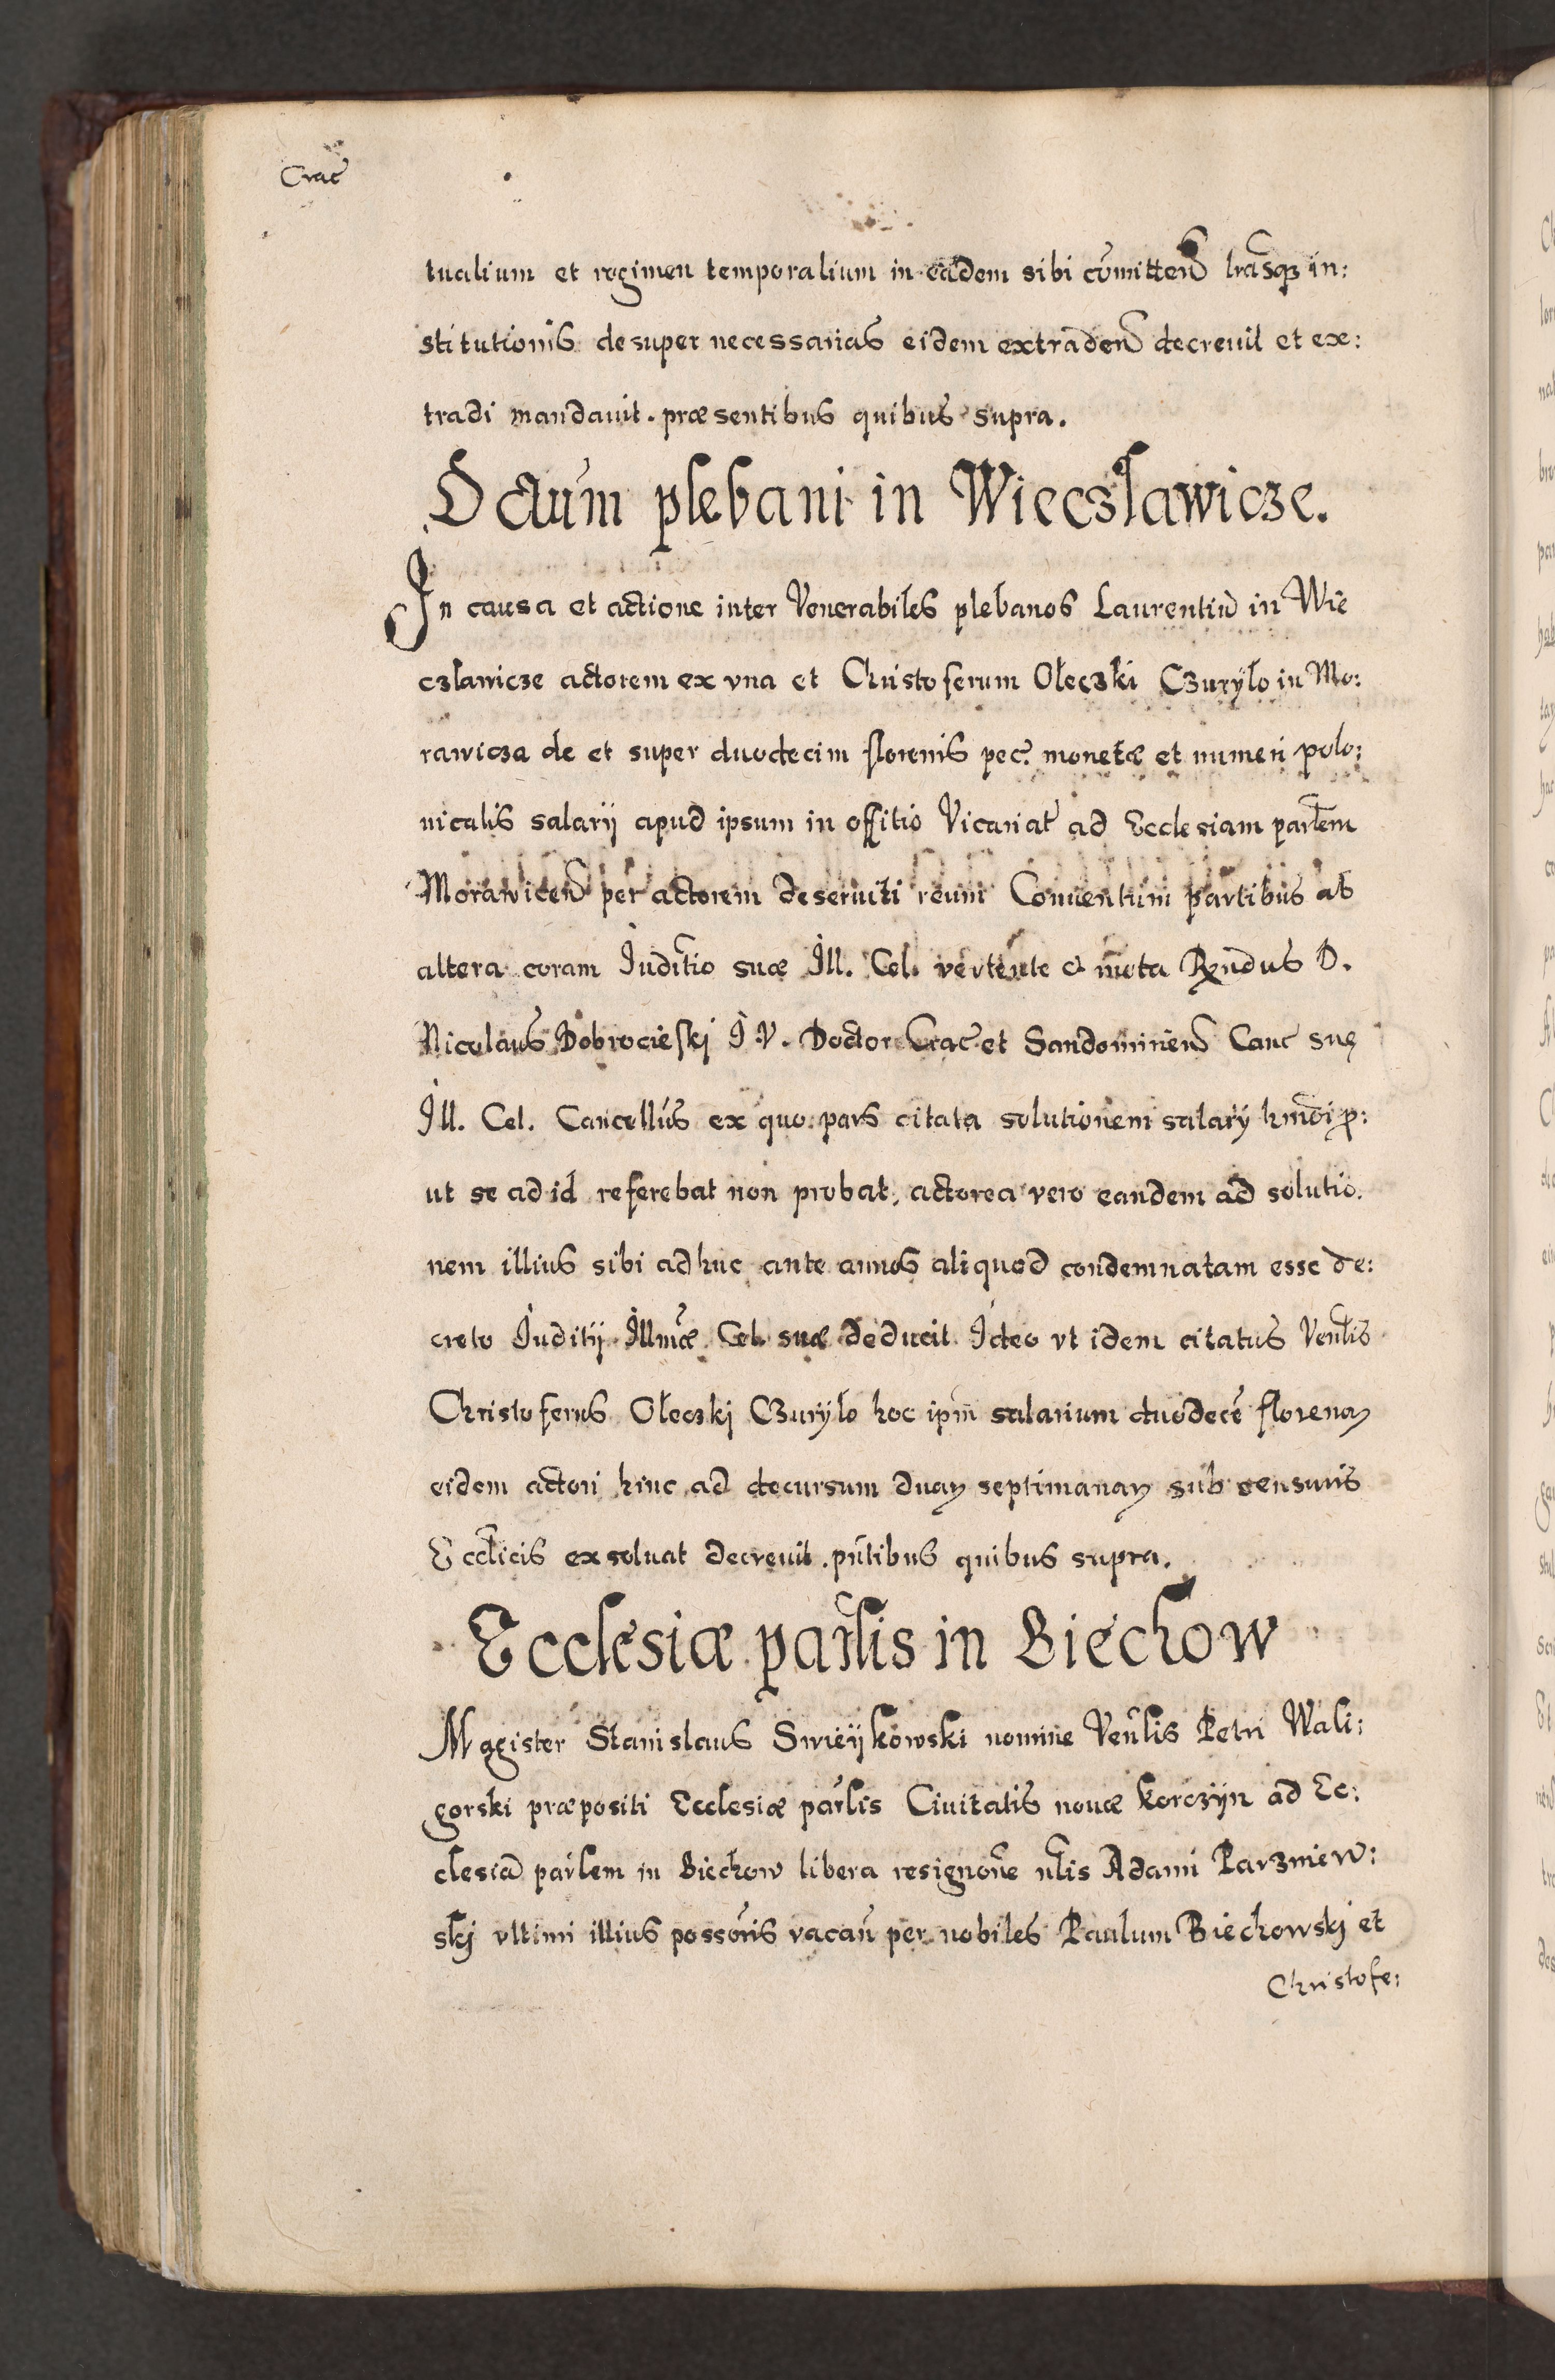 Crac̃
tualium et regimen temporalium in eãdem sibi cõmitten̄ lrãsqȝ in:
stitutionis desuper necessarias eidem extraden̄ decreuit et ex:
tradi mandauit. præsentibus quibus supra.
Dctum plebani in Wieczlawicze.
In causa et actione inter Venerabiles plebanos Laurentiũ in Wie
czlawicze actorem ex vna et Christoferum Oleczki Czurÿlo in Mo:
rawicza de et super duodecim florenis pec. monetæ et numeri polo:
nicalis salarij apud ipsum in offitio Vicariat̃ ad Ecclesiam parlem
Morawicen̄ per actorem deseruiti reum Conuentum partibus ab
altera coram Juditio suæ Ill. Cel. vertente et mota Rñdus D.
Nicolaus Dobrocieski J. V. Doctor Crac̃ et Sandomirien̄ Canc̃ suę
Ill. Cel. Cancellus̃ ex quo pars citata solutionem salarij hm̃oi pro:
ut se ad id referebat non probat, actorea vero eandem ad solutio.
nem illius sibi adhuc ante annos aliquod condemnatam esse de:
creto Juditij Illm̃æ Cel. suæ deducit. Ideo vt idem citatus Ven̄lis
Christoferus Oleczkj Czurÿlo hoc ipm̃ salarium duodecẽ florenoꝝ
eidem actori hinc ad decursum duaꝝ septimanaꝝ sub censuris
Eccl̃icis exsoluat decreuit. pñtibus quibus supra.
Ecclesiæ par̃lis in Biechow
Magister Stanislaus Swieÿkowski nomine Veñlis Petri Wali:
gorski præpositi Ecclesiæ par̃lis Ciuitatis nouæ Korczÿn ad Ec:
clesiã par̃lem in Biechow libera resignoñe nl̃is Adami Parzniew:
skj vltimi illius possoris̃ vacan̄ per nobiles Paulum Biechowskj et
Christofe: